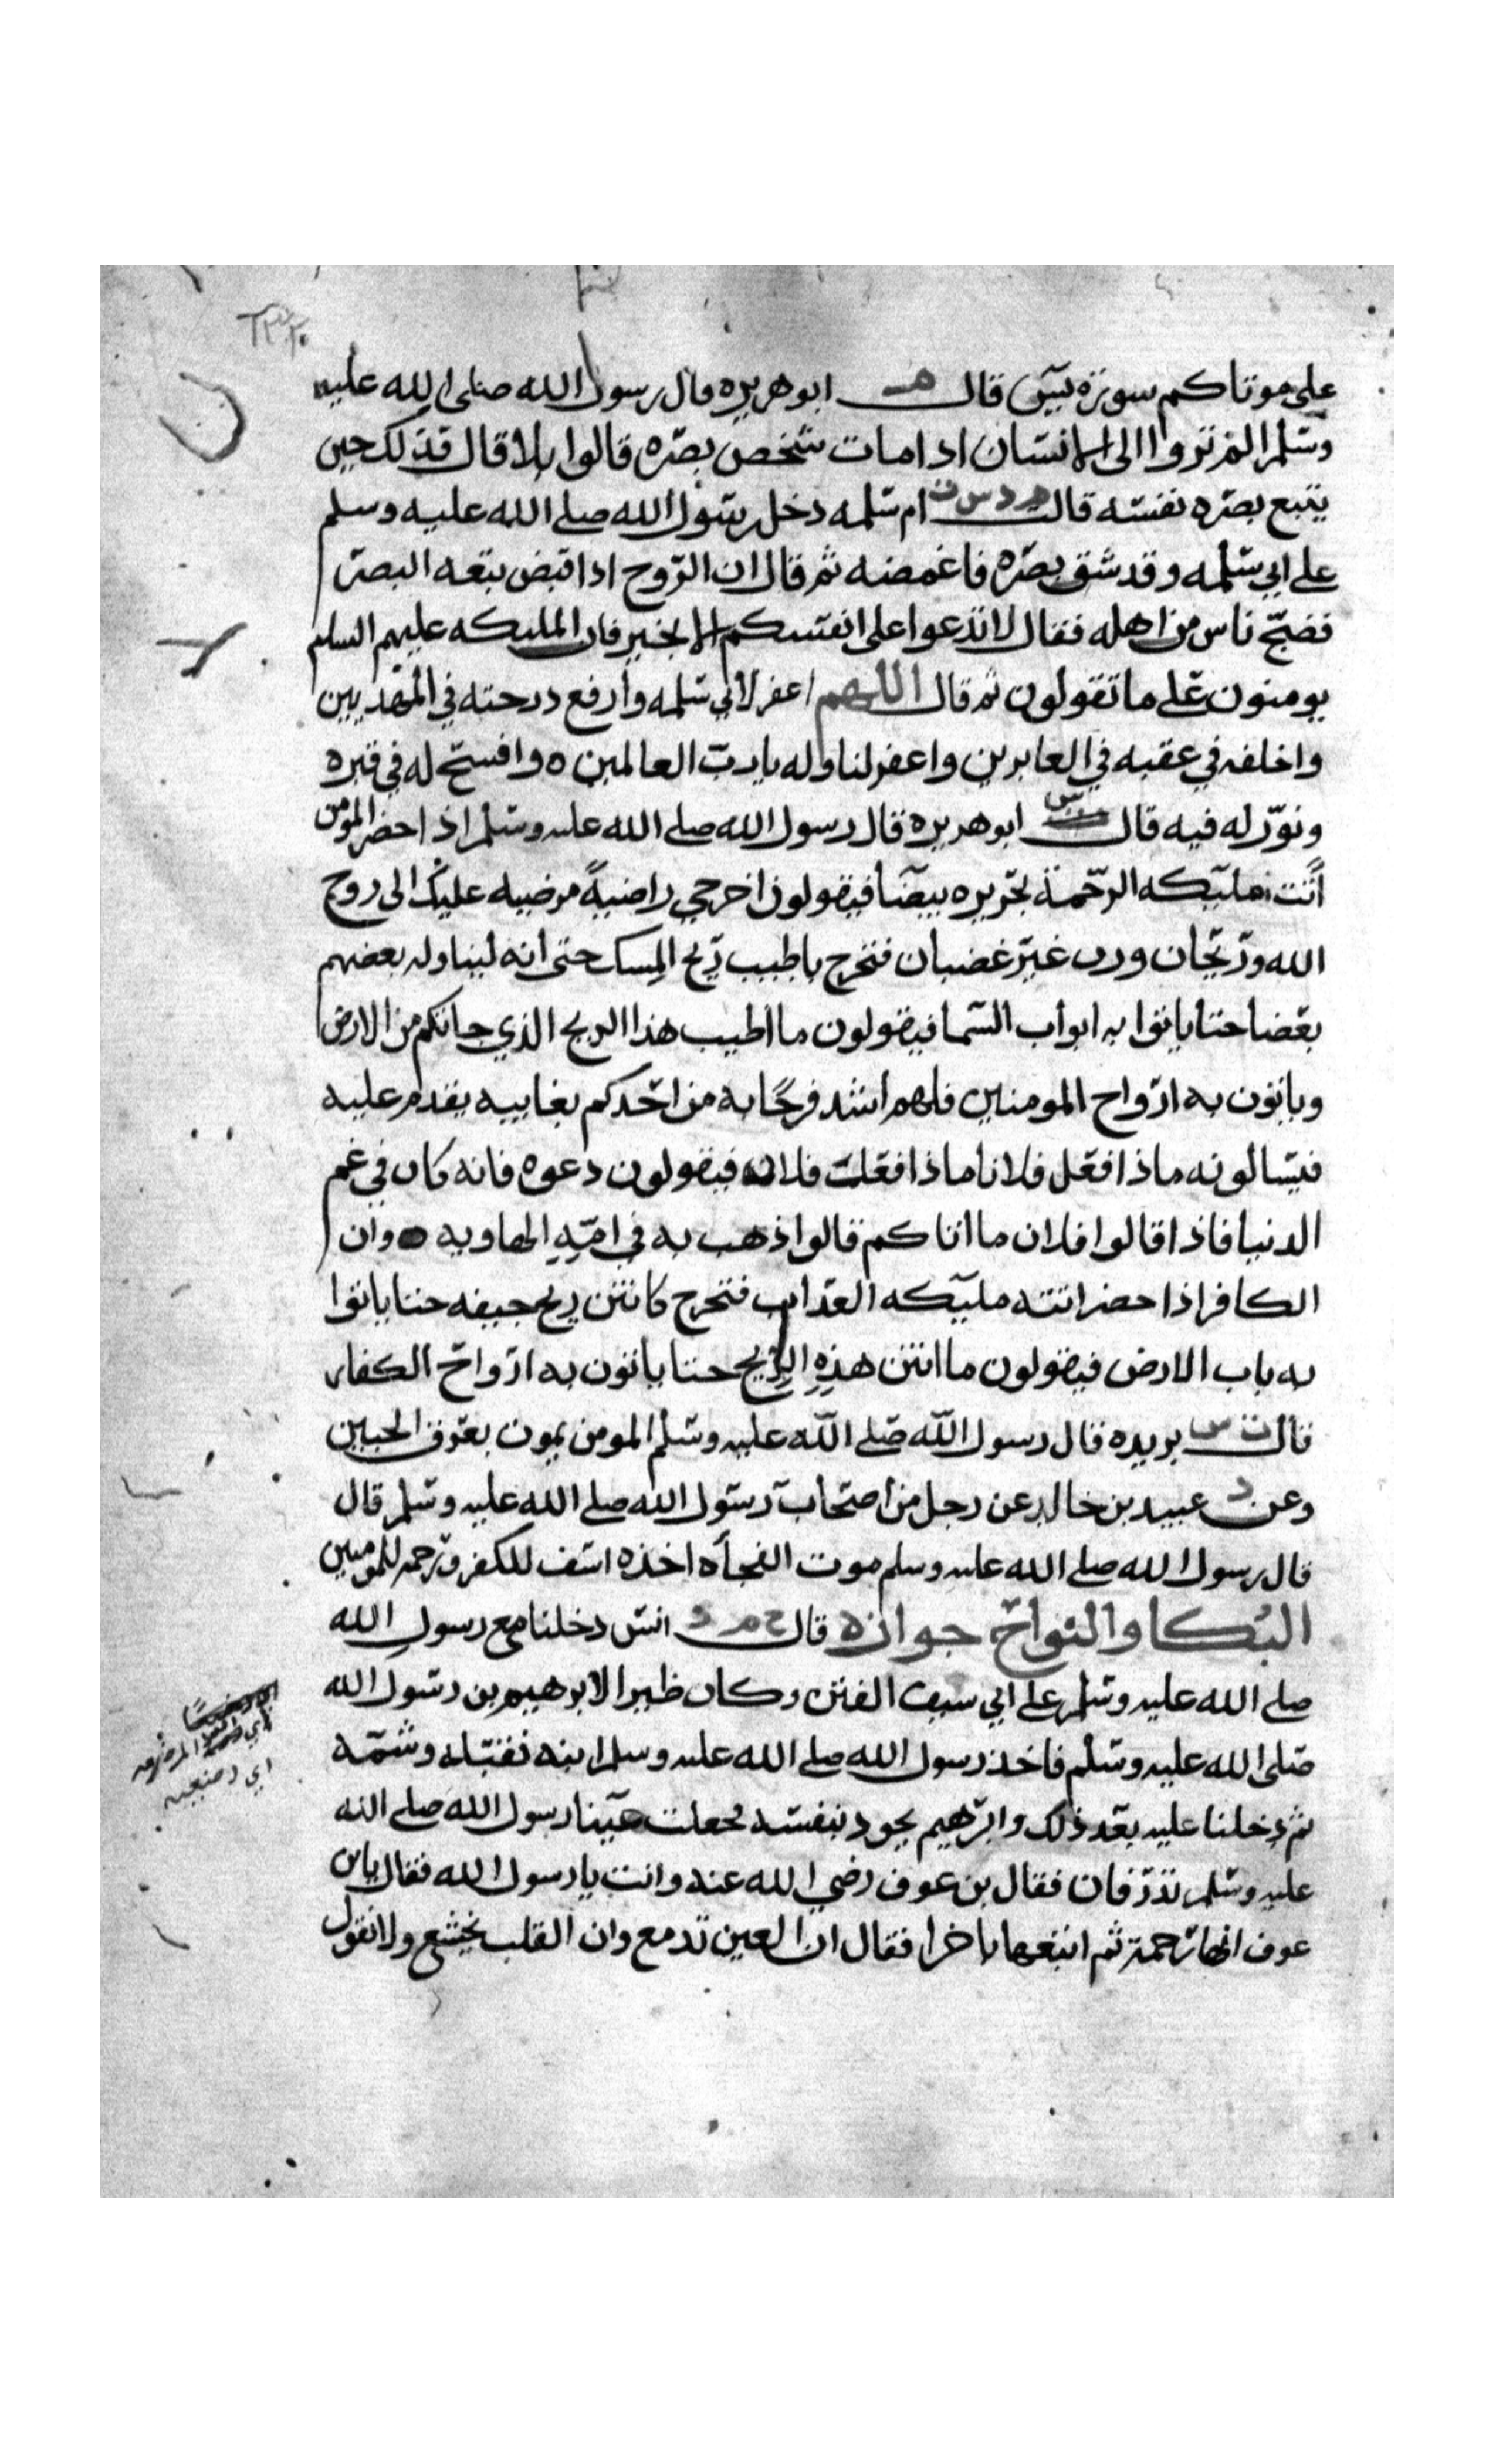 على موتاكم سورة يس قال م ابو هريره قال رسول الله صلى الله عليه
وسلم الم تروا الى الانسان اذا مات شخص بصره قالوا بلا قال فذلك حين
يتبع بصره نفسه قالت م د س ت ام سلمه دخل رسول الله صلى الله عليه وسلم
على ابي سلمه وقد شق بصره فاغمضه ثم قال ان الروح اذا قبض تبعه البصر
فضج ناس من اهله فقال لا تدعوا على انفسكم الا بخير فان المليكه عليهم السلم
يومنون على ما تقولون ثم قال اللهم اغفر لابي سلمه وارفع درجته في المهديين
واخلفه في عقبه في الغابرين واغفر لنا وله يا رب العالمين ه وافسح له في قبره
ونور له فيه قال س ابو هريره قال رسول الله صلى الله عليه وسلم اذا حضر المومن
أتت مليكه الرحمة بحريره بيضا فيقولون اخرجي راضيةً مرضيه عليك الى روح
الله وريحان ورب غير غضبان فتخرج باطيب ريح المسك حتى أنه ليناوله بعضهم
بعضا حتا ياتوا به ابواب السما فيقولون ما اطيب هذا الريح الذي جاتكم من الارض
وياتون به ارواح المومنين فلهم اشد فرحًا به من احدكم بغاييبه يقدم عليه
فيسالونه ماذا فعل فلانا ماذا فعلت فلانه فيقولون دعوه فانه كان في غم
الدنيا فاذا قالوا فلان ما اتاكم قالوا ذهب به في امه الهاويه ه وان
الكافر اذا حضر اتته مليكه العذاب فتخرج كانتن ريح جيفه حتا ياتوا
به باب الارض فيقولون ما انتن هذه الريح حتا ياتون به ارواح الكفار
قال ت س بريده قال رسول الله صلى الله عليه وسلم المومن يموت بعرق الجبين
وعن د عبيد بن خالد عن رجل من اصحاب رسول الله صلى الله عليه وسلم قال
قال رسول الله صلى الله عليه وسلم موت الفجأه اخذه اسف للكفر ورحمه للمومنين
البكا والنواح جوازه قال خ م د انس دخلنا مع رسول الله
صلى الله عليه وسلم على ابي سيف القين وكان ظيرا لابرهيم بن رسول الله
صلى الله عليه وسلم فاخذ رسول الله صلى الله عليه وسلم ابنه فقبله وشمه
ثم دخلنا عليه بعد ذلك وابرهيم يجود بنفسه فجعلت عينا رسول الله صلى الله
عليه وسلم تذرفان فقال بن عوف رضي الله عنه وانت يا رسول الله فقال يابن
عوف انها رحمة ثم اتبعها باخرا فقال ان العين تدمع وان القلب يخشع ولا نقول